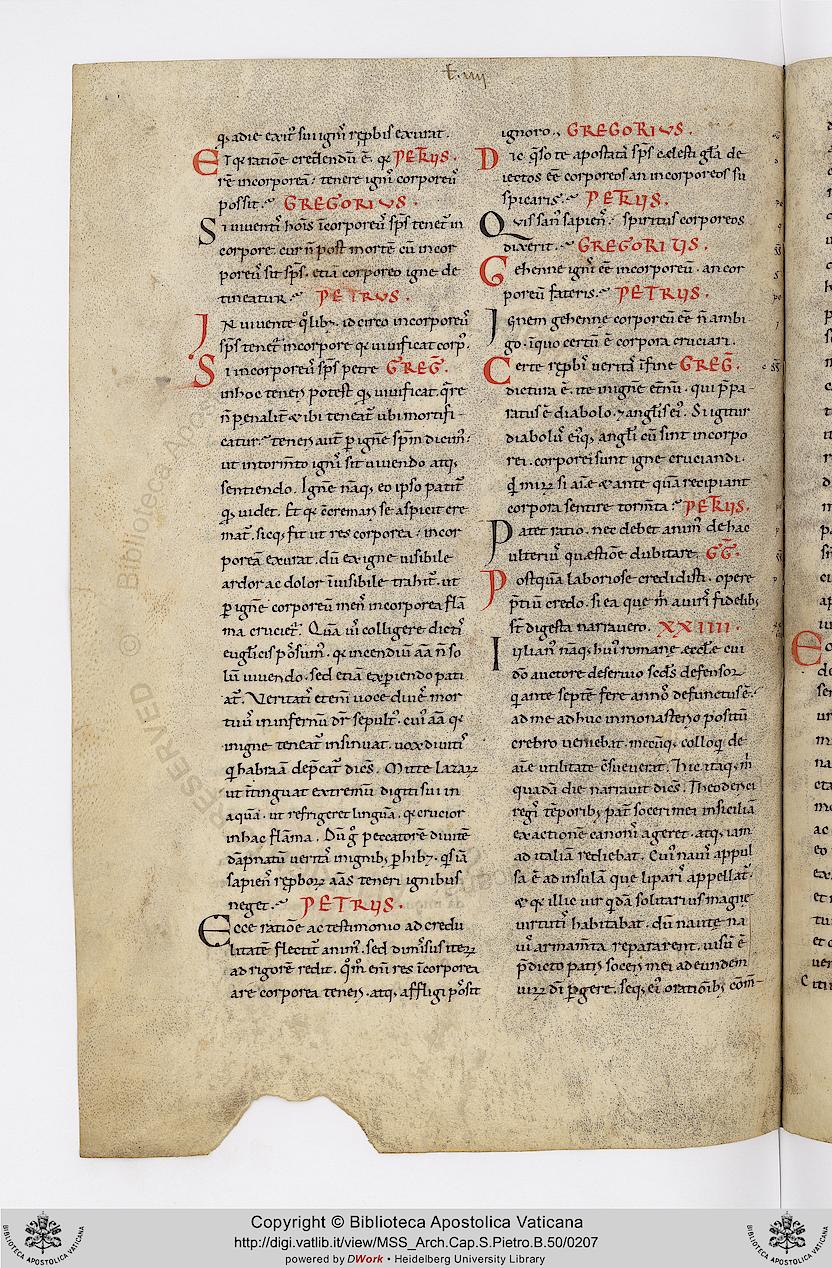 t. iiij
q̨adie exit̾ sui igni͛ rep̄bis exurat.
Et q̨ ratiōe credendū ē. q̨ PETRUS.
rē incorporeā: tenere igni͛ corporeū
possit. GREGORIUS.
Si viventi͛ hoi͛s īcorporeū sp̄s tenet̾ in
corpore. cur n̄ post mortē cū incor
poreu͛ sit sp̄s. etiā corporeo igne de
tineatur. PETRUS.
In vivente q͛lib&. idcirco incorporeu͛
sp̄s tenet̾ incorpore q̨ vivificat corp͛.
Si incorporeu͛ sp̄s petre GREḠ.
inhoc teneri potest q͛ vivificat. q̄re
n̄ penalit̾ & ibi teneat̾ ubi mortifi-
catur. teneri aut̄ p̱ ignē sp̄m dicim͛:
ut intorm̄to igni͛ sit vivendo atq;
sentiendo. Ignē naq; eo ipso patit̾
q; videt. Et q̨ c̄cremari se aspicit cre
mat̾. sicq; fit ut res corporea: incor
poreā exurat. dū exigne visibile
ardor ac dolor īvisibile trahit̾. ut
p̱ ignē corporeū men͛ incorporea flā
ma cruciet̾. Quā vi͛ colligere dicti͛
evḡlicis pos̄sum͛. q̨ incendiū aīa n̄ so
lū vivendo. sed etiā experiendo pati
at̾. Veritati͛ eteni͛ voce dive͛ mor
tuu͛ in infernū dr̄ sepult͛. cui͛ aīa q̨
inigne teneat̾ insinuat. vox diviti͛
q͛ habraā dep̄cat̾ dices͛. Mitte lazarꝝ
ut ītinguat extremū digiti sui in
aquā. ut refrigeret linguā. q̨ crucior
inhac flāma. Dū g͛ peccatorē divitē
dāpnatū verita͛ inignib; p̱hib&. q͛sīā
sapien͛ rep̄borꝝ aīas teneri ignibus
neget. PETRUS.
Ecce ratiōe ac testimonio ad credu
litatē flectit̾ anim͛. sed dimis͛sus iterꝝ
ad rigorē redit. Qm̄ eni͛ res īcorporea
a re corporea teneri. atq; affligi pos̄sit
ignoro. GREGORIUS.
Dic q̄so te apostata͛ sp̄s celesti gl̄a de
iectos ēē corporeos an incorporeos su
spicaris. PETRUS.
Quis san͛ sapien͛. spiritus corporeos
dixerit. GREGORIUS.
Gehenne igni͛ ēē incorporeū. an cor
poreū fateris. PETRUS.
Ignem gehenne corporeū ēē n̄ ambi
go. ī quo certū ē corpora cruciari.
Certe rep̄bi͛ verita͛ ī fine GREḠ.
dictura ē. ite inignē et̄nu͛. qui p̄pa
ratus ē diabolo. ⁊ angl̄is ei͛. Si igitur
diabolu͛ ei͛q; angl̄i cū sint incorpo
rei. corporei sunt igne cruciandi.
q͛ mirꝝ si aīe & ante quā recipiant
corpora sentire torm̄ta. PETRUS.
Patet ratio. nec debet anim͛ de hac
ulteriu͛ questiōe dubitare. GḠ.
Postquā laboriose credidisti. opere
p̄tiū credo. si ea que m͛ a viri͛ fidelib;
st̄ digesta narravero. XXIIII.
Iuliani͛ naq; hui͛ romane eccl̄e cui
dō auctore deservio scd͛s defensor
q͛ ante septē fere anno͛ defunctus ē.
ad me adhuc in monasterio positū
crebro veniebat. mecūq; colloq͛ de
aīe utilitate c̄sueverat. Hic itaq; m͛
quadā die narravit dice͛s. Theodorici
regi͛ tēporib; pat̾ soceri mei in siciliā
exactionē canoni͛ ageret. atq; iam
ad italiā rediebat. Cui͛ navi͛ appul
sa ē ad insulā que lipari͛ appellat̾.
& q̨ illic vir q͛dā solitarius magne
virtuti͛ habitabat. dū naute na
vi͛ armam̄ta repararent. visū ē
p̄dicto patri soceri mei ad eundem
virꝝ dī p̱gere. seq; ei͛ oratiōib; cōm-
Copyright © Biblioteca Apostolica Vaticana
http://digi.vatlib.it/view/MSS_Arch.Cap.S.Pietro.B.50/0207
powered by DWork • Heidelberg University Library